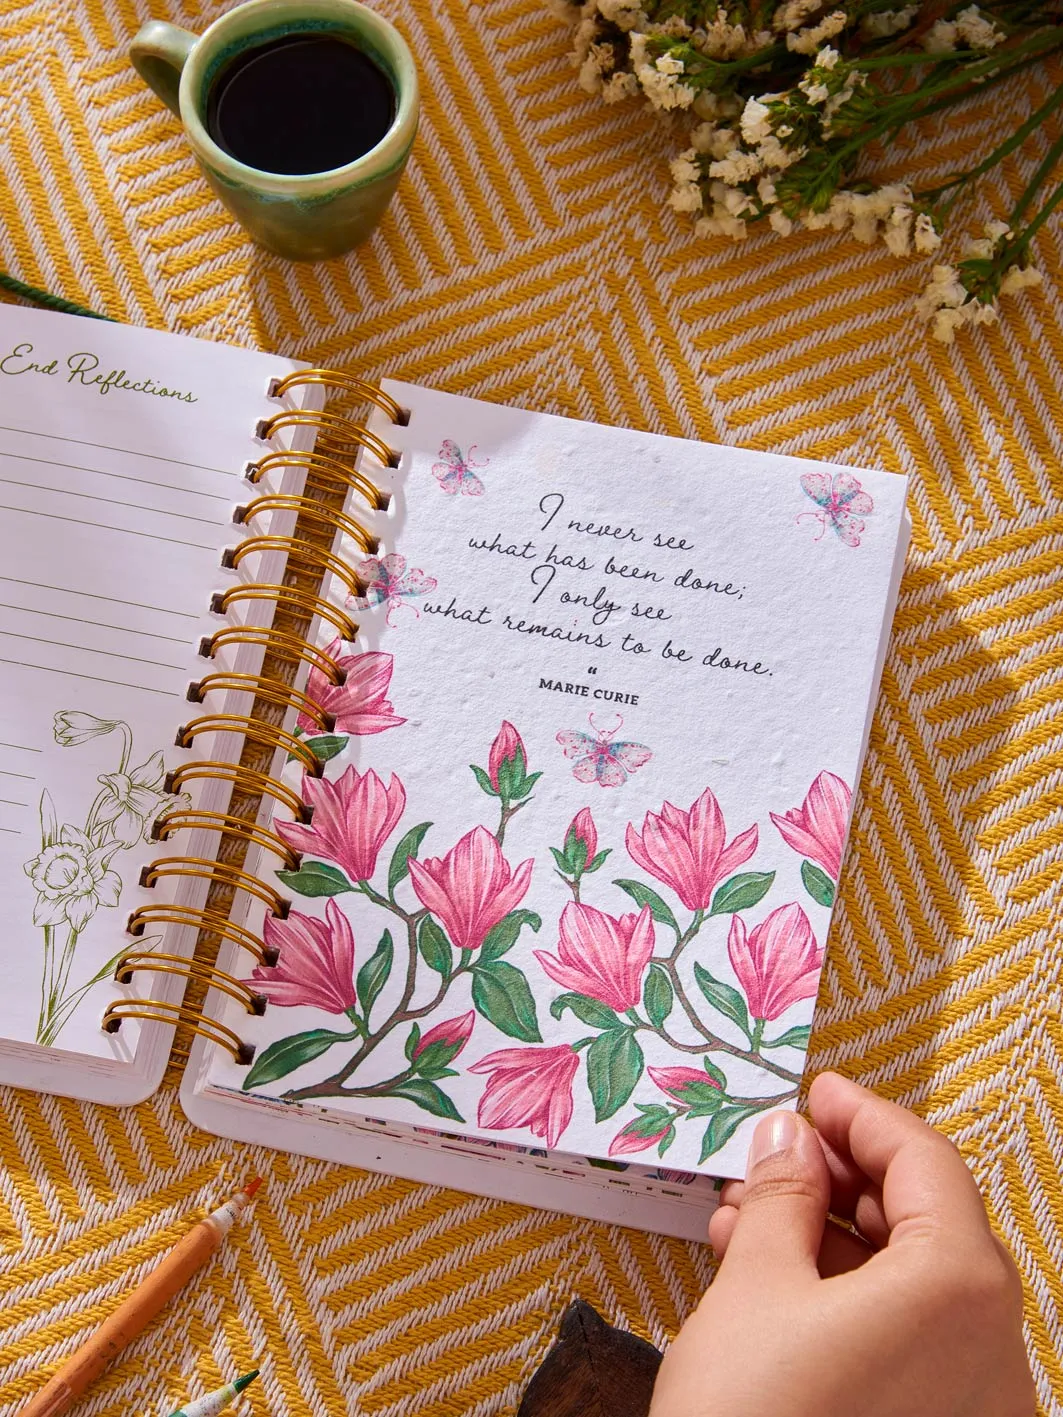 End Reflections
I never see
what has been done;
I only see
what remains to be done.
“
MARIE CURIE